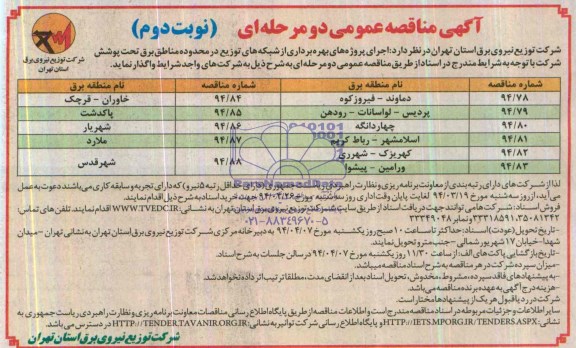 آگهی مناقصه عمومی دو مرحله ای (نوبت دوم)
شرکت توزیع نیروی برق
استان تهران
شرکت توزیع نیروی برق استان تهران در نظر دارد: اجرای پروژه های بهره برداری از شبکه های توزیع در محدوده مناطق برق تحت پوشش
شرکت با توجه به شرایط مندرج در اسناد از طریق مناقصه عمومی دو مرحله ای به شرح ذیل به شرکت های واجد شرایط واگذار نماید.
شماره مناقصه نام منطقه برق شماره مناقصه نام منطقه برق
۹۴/۷۸ دماوند - فیروزکوه ۹۴/۸۴ خاوران - قرچک
۹۴/۷۹ پردیس - لواسانات - رودهن ۹۴/۸۵ پاکدشت
۹۴/۸۰ چهاردانگه ۹۴/۸۶ شهریار
۹۴/۸۱ اسلامشهر - رباط کریم ۹۴/۸۷ ملارد
۹۴/۸۲ کهریزک - شهرری ۹۴/۸۸ شهرقدس
۹۴/۸۳ ورامین - پیشوا
لذا از شرکت های دارای رتبه بندی از معاونت برنامه ریزی و نظارت راهبردی ریاست جمهوری (دارای حداقل رتبه ۵ نیرو) که دارای تجربه و سابقه کاری می باشند دعوت به عمل
می آید، از روز سه شنبه مورخ ۹۴/۰۳/۱۹ لغایت پایان وقت اداری روز سه شنبه مورخ ۹۴/۰۳/۲۶ جهت خرید اسناد به شرح ذیل
فروش اسناد: شرکت ها می توانند جهت دریافت اسناد از طریق سایت شرکت توزیع نیروی برق استان تهران به نشانی: WWW.TVEDC.IR اقدام نمایند. تلفن های تماس:
۳۳۳۱۸۵۹۱،۳۵۰۸۱۳۴۲ و نمابر ۳۳۳۴۹۰۴۸ اقدام نمایند.
-تاریخ تحویل (عودت) اسناد: حداکثر تا ساعت ۱۰ صبح روز یکشنبه مورخ ۹۴/۰۴/۰۷ به دبیرخانه مرکزی شرکت توزیع نیروی برق استان تهران به نشانی تهران - میدان
شهدا- خیابان ۱۷ شهریور شمالی - جنب مترو تحویل نمایند.
-تاریخ بازگشایی پاکت های الف: از ساعت ۱۱/۳۰ روز یکشنبه مورخ ۹۴/۰۴/۰۷ در سالن جلسات به شرح اسناد.
-میزان سپرده شرکت در هر مناقصه به شرح اسناد مناقصه میباشد.
-به پیشنهادهای فاقد سپرده، مشروط، مخدوش، تحویل اسناد بعد از انقضای مدت، مطلقا ترتیب اثر داده نخواهد شد.
-هزینه درج آگهی به عهده برنده مناقصه می باشد.
-شرکت در رد یا قبول هر یک از پیشنهادها مختار است.
سایر اطلاعات و جزئیات مربوطه در اسناد مناقصه مندرج است و اطلاعات مناقصه از طریق پایگاه اطلاع رسانی مناقصات معاونت برنامه ریزی و نظارت راهبردی ریاست جمهوری به
نشانی: HTTP://IETS.MPORG.IR/TENDERS.ASPX و پایگاه اطلاع رسانی شرکت توانیر به نشانی: HTTP://TENDER.TAVANIR.ORG.IR در دسترس می باشد.
شرکت توزیع نیروی برق استان تهران
۰۲۱-۸۸۳۴۹۶۷۰-۵